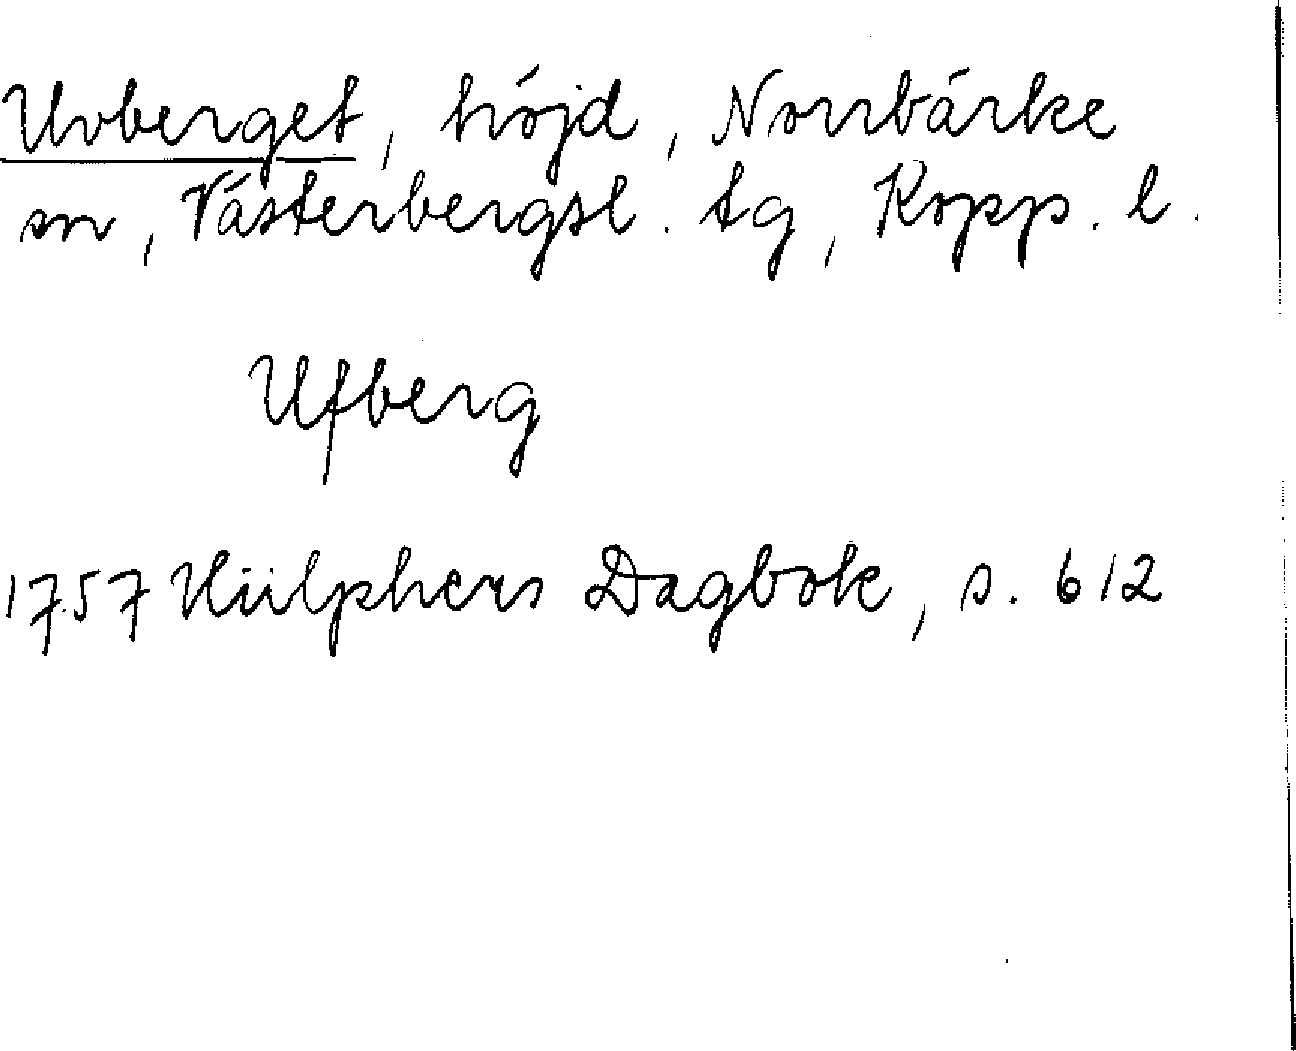 Uvberget, höjd, Norrbärke
sn, Västerbergsl. tg, Kopp. l.
Ufberg
1757 Hülphers Dagbok, s. 612